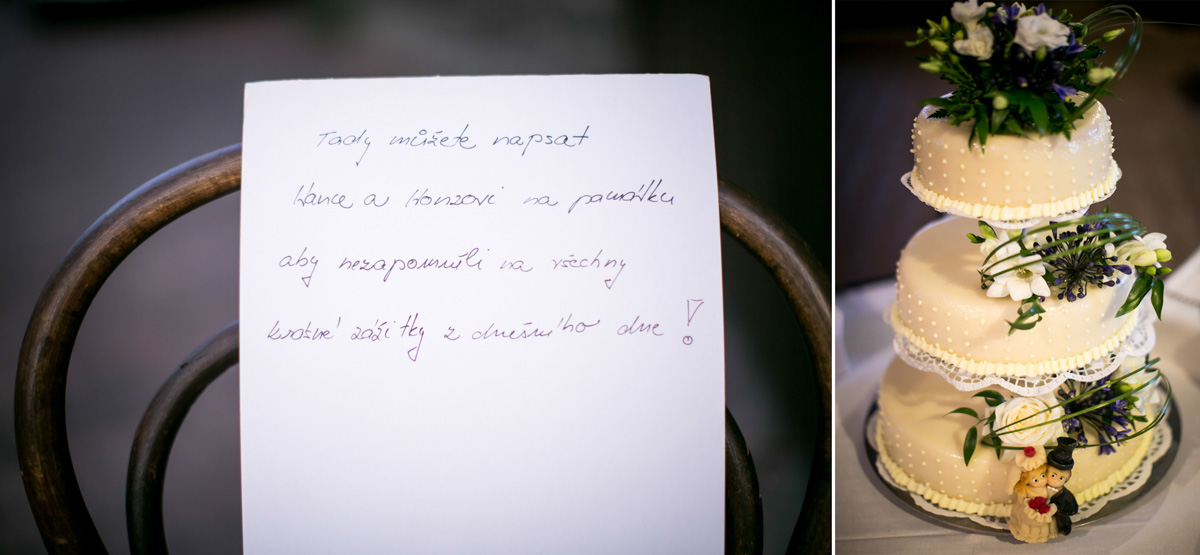 Tady můžete napsat
Hance a Honzovi na památku
aby nezapomněli na všechny
krásné zážitky z dnešního dne!